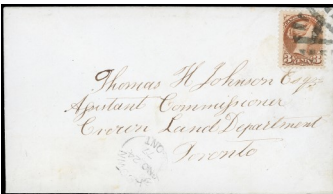 Thomas H Johnson Esqr
Assistant Commissioner
Crown Land Department
Toronto
3 3
ONT